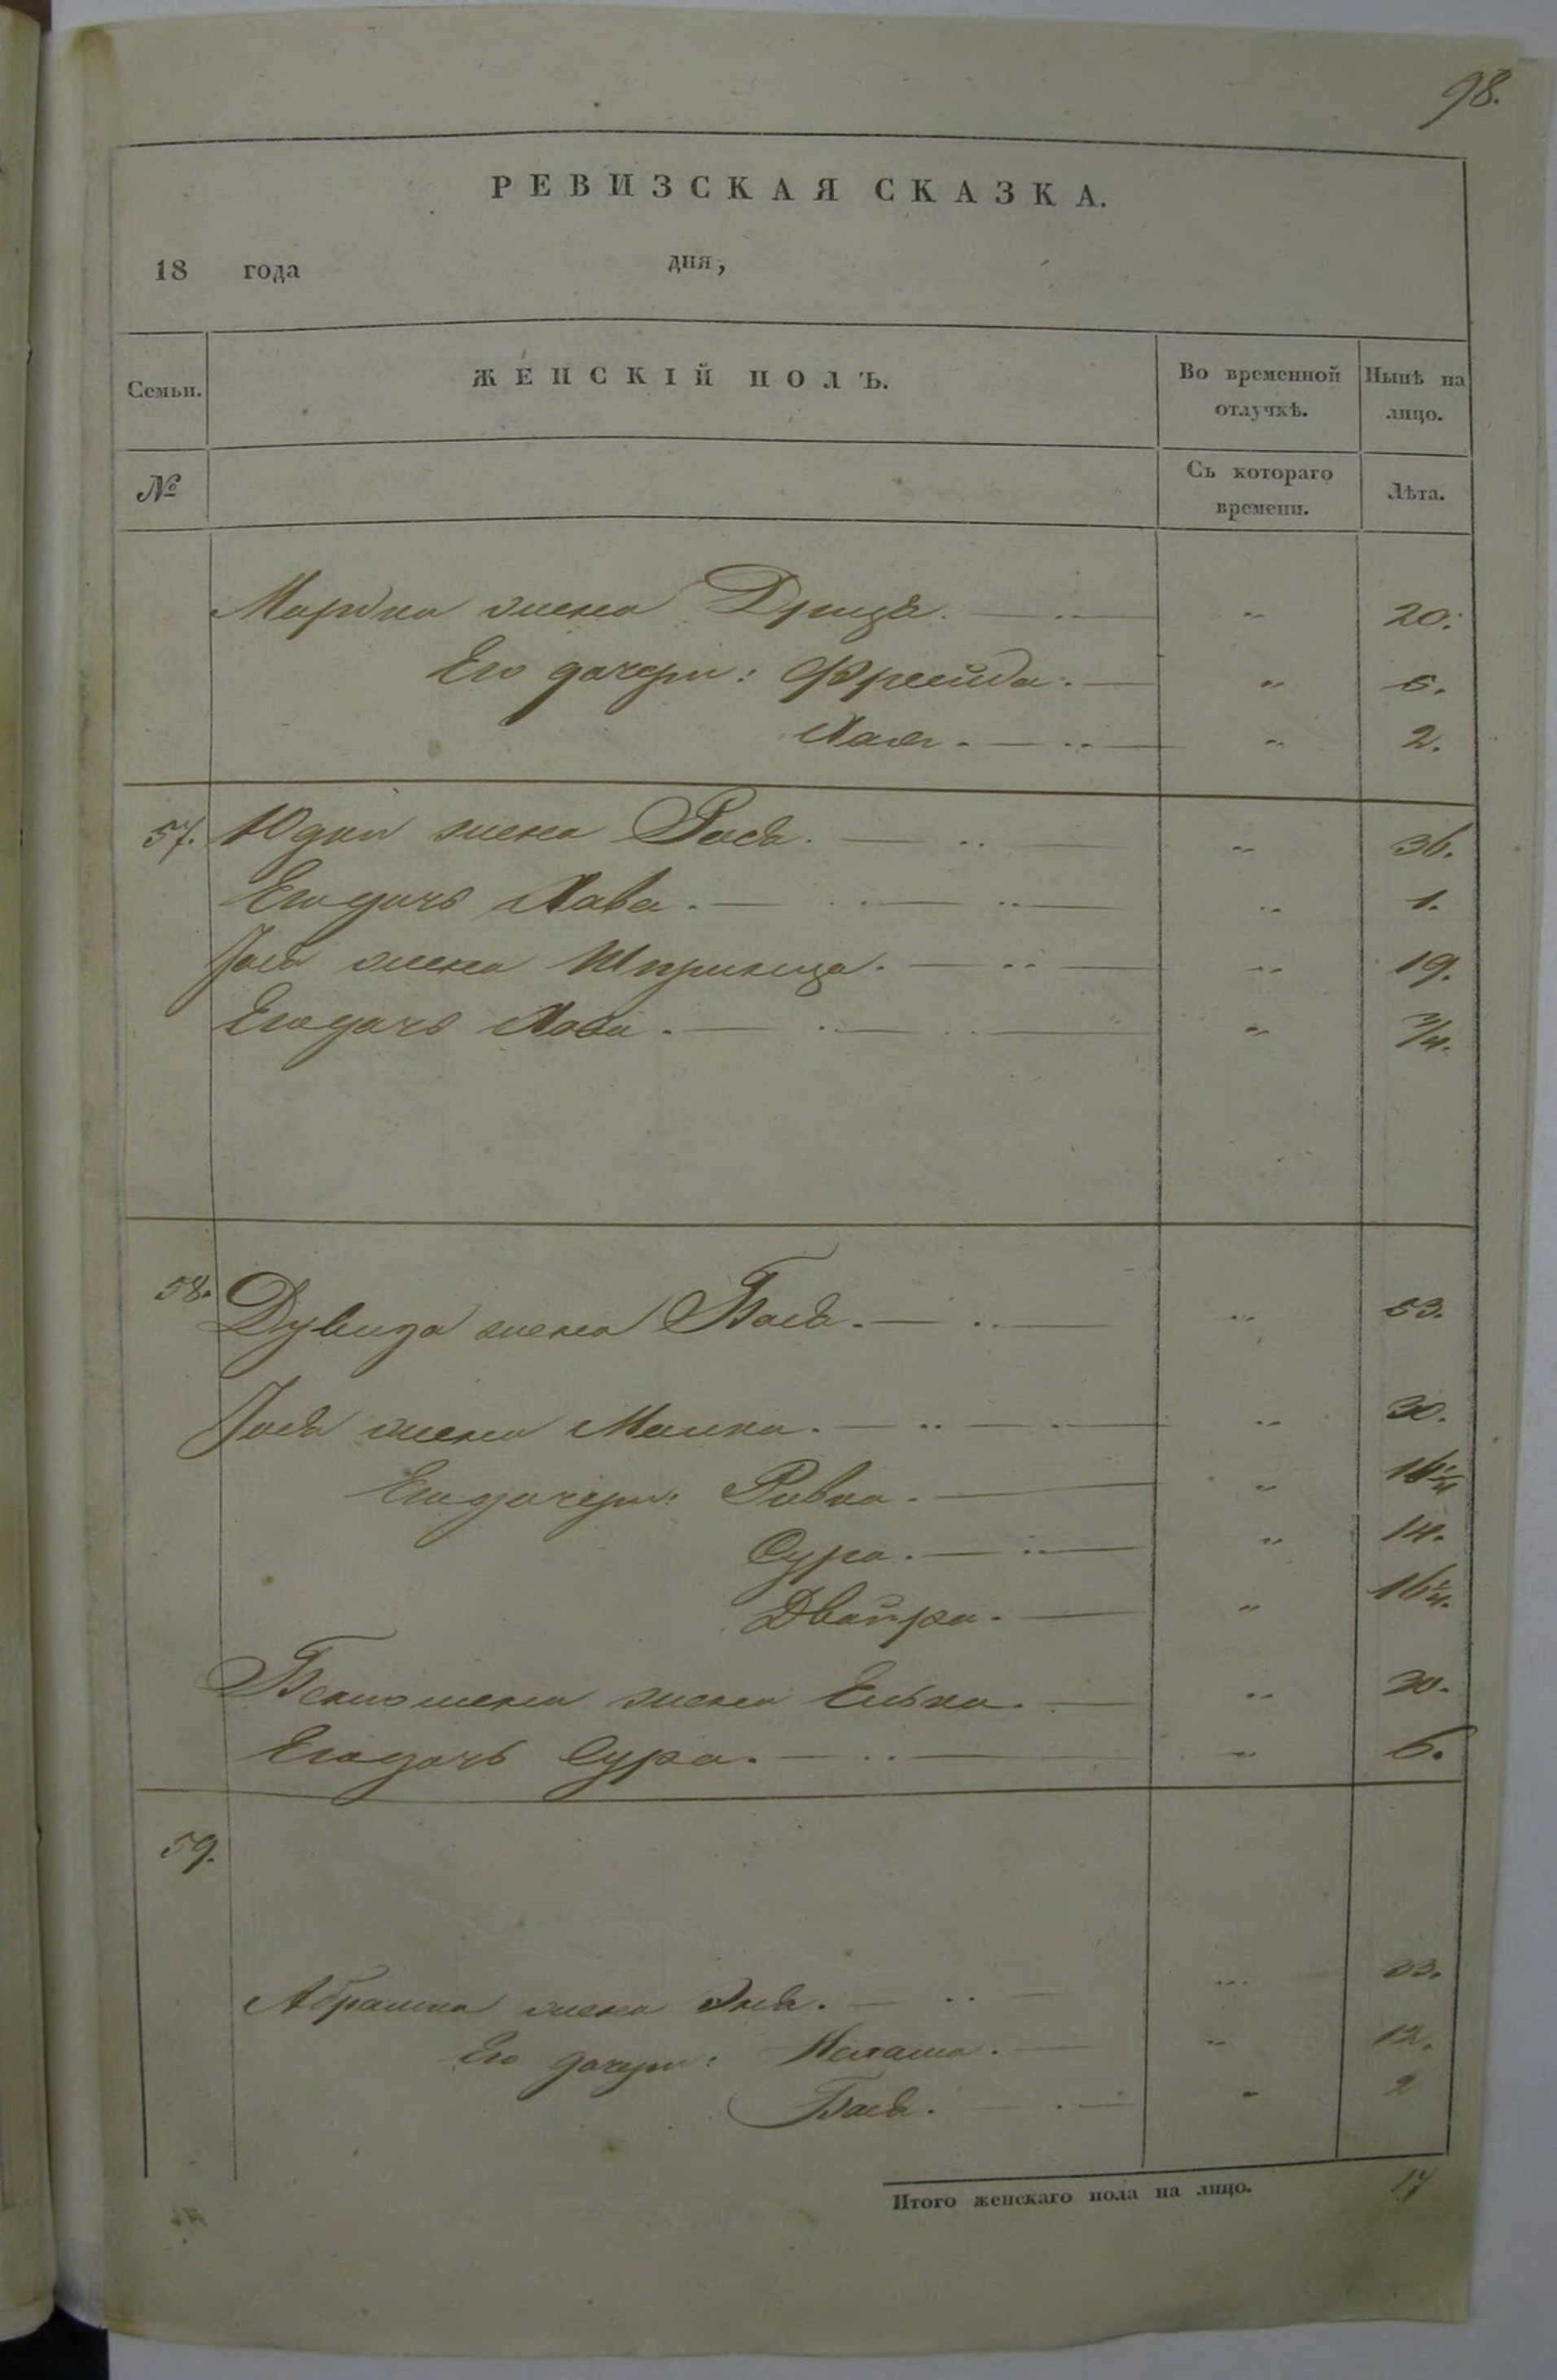 98.
РЕВИЗСКАЯ СКАЗКА.
18 года дня,
Семьи. ЖЕНСКІЙ ПОЛЪ. Во временной отлучкѣ. Нынѣ на лицо.
№ Съ котораго времени. Лѣта.
жена 20.
Его дочери: Фрейда. — „ 6.
Хая. — „ 2.
57. Юдки жена Рася. — „ 36.
Его дочь Хава. — „ 1.
Іося жена Шпринца. — „ 19.
Его дочь Хава. — „ 3/4.
58. Дувида жена Бася. — „ 53.
Іося жена Малка. — „ 30.
Его дочери: Ривка. — „
Сура. — „ 14.
Двойра. — „
жена Елька. — „ 30.
Его дочь Сура. — „ 6.
59.
Абрашка жена „ 33.
Его дочери: Нехама. — „ 12.
Бася. — „ 2
Итого женскаго пола на лицо. 17